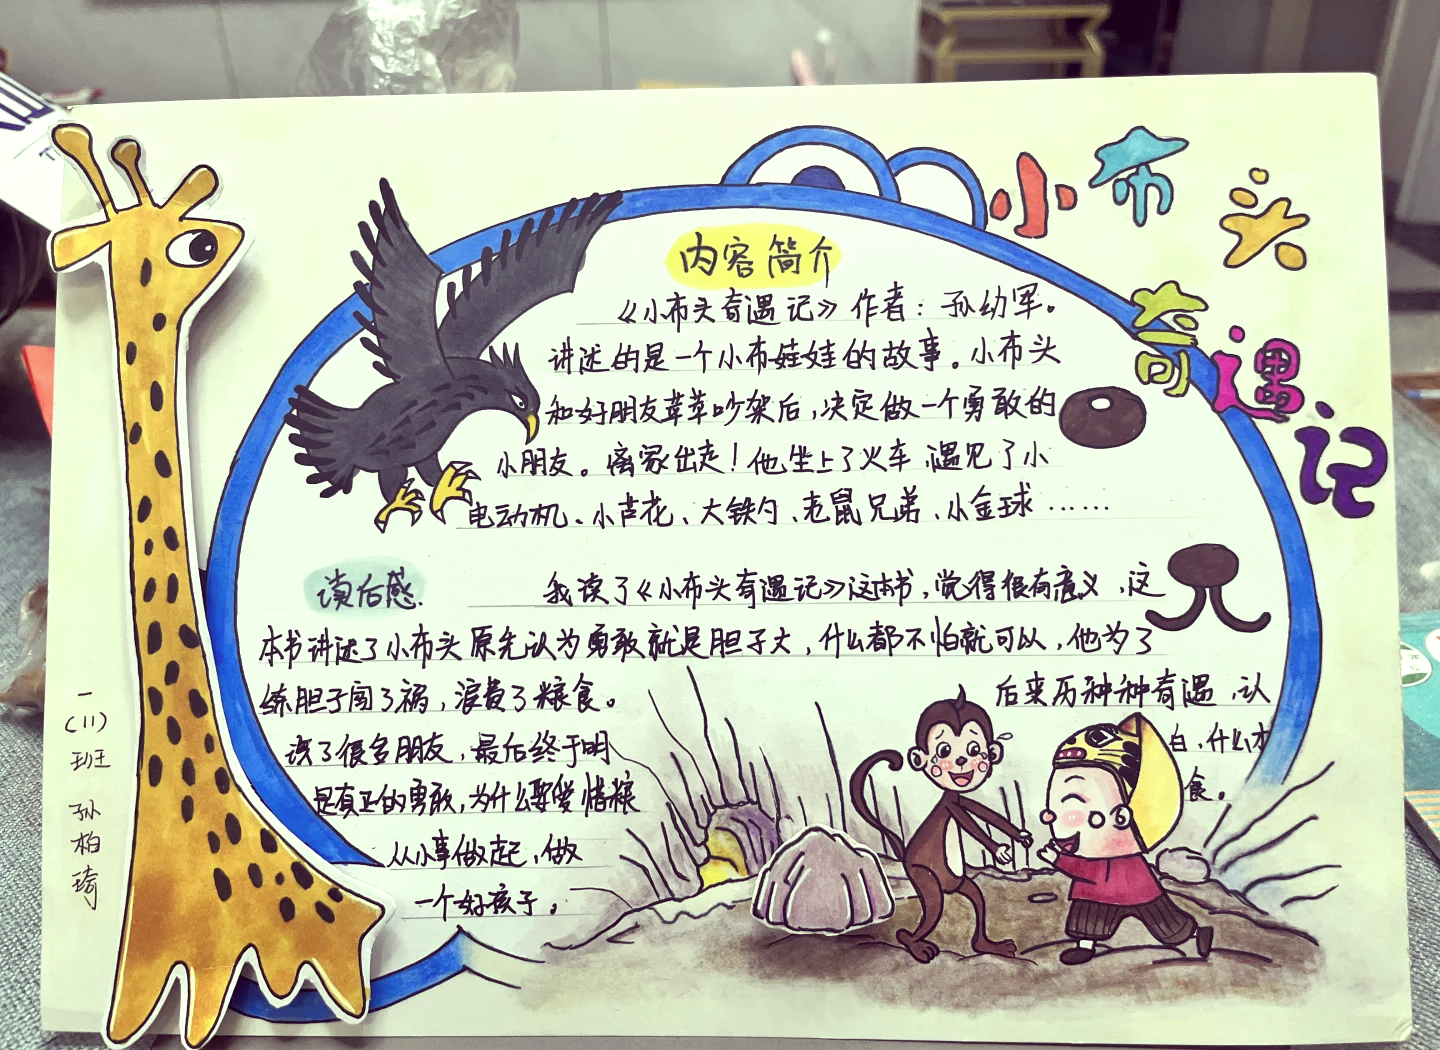 小布头
奇遇记
内容简介
《小布头奇遇记》作者：孙幼军。
讲述的是一个小布娃娃的故事。小布头
和好朋友苹苹吵架后，决定做一个勇敢的
小朋友。离家出走！他坐上了火车，遇见了小
电动机、小芦花、大铁勺、老鼠兄弟、小金球……
读后感.
我读了《小布头奇遇记》这本书，觉得很有意义，这
本书讲述了小布头原先认为勇敢就是胆子大，什么都不怕就可以，他为了
练胆子闯了祸，浪费了粮食。
后来历种种奇遇，认
识了很多朋友，最后终于明
白，什么才
是真正的勇敢，为什么要爱惜粮
食。
从小事做起，做
一个好孩子。
一
（11）
班
孙
柏
琦